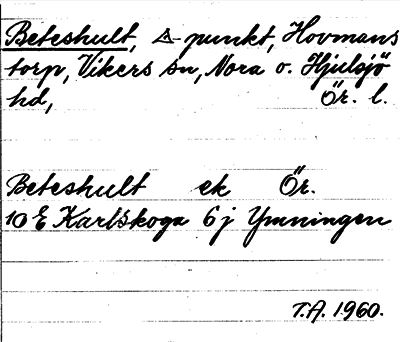 Beteshult, △-punkt, Hovmans
torp, Vikers sn, Nora o. Hjulsjö
hd, Ör. l.
Beteshult ek Ör.
10 E Karlskoga 6 j Ymningen
T.A. 1960.